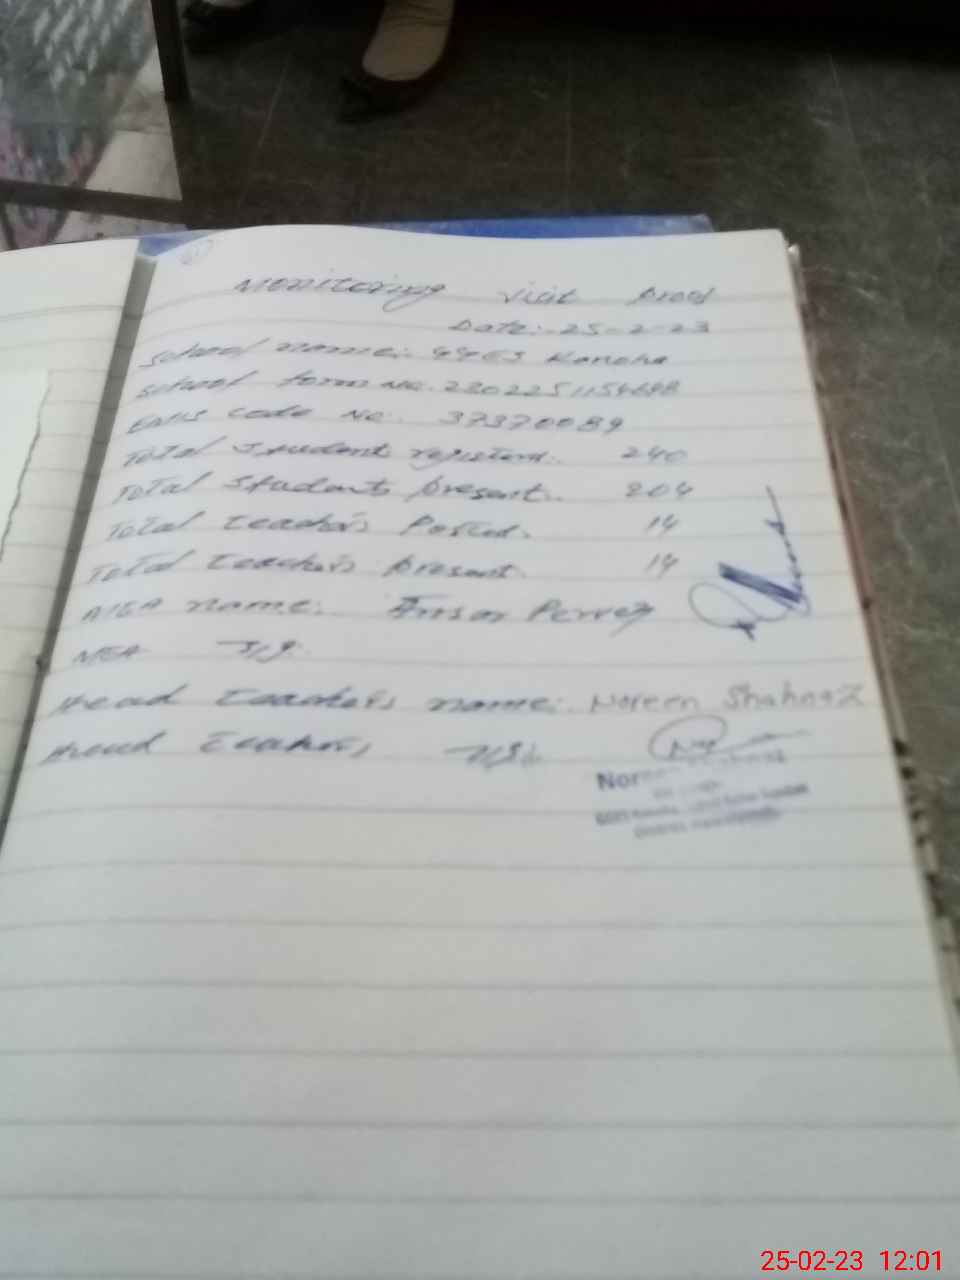 Monitoring visit proof
Date:- 25-2-23
School name:. GGES Kanoha
School form No. 2302251154698
EMIS Code No:. 37370089
Total Student registerd:. 240
Total Students present:. 204
Total teachers Posted. 14
Total teachers present. 14
MEA name:. Ansar Pervez
MEA Sig:
Head teacher's name:. Noreen Shahnaz
Head teacher's Sig.
25-02-23 12:01